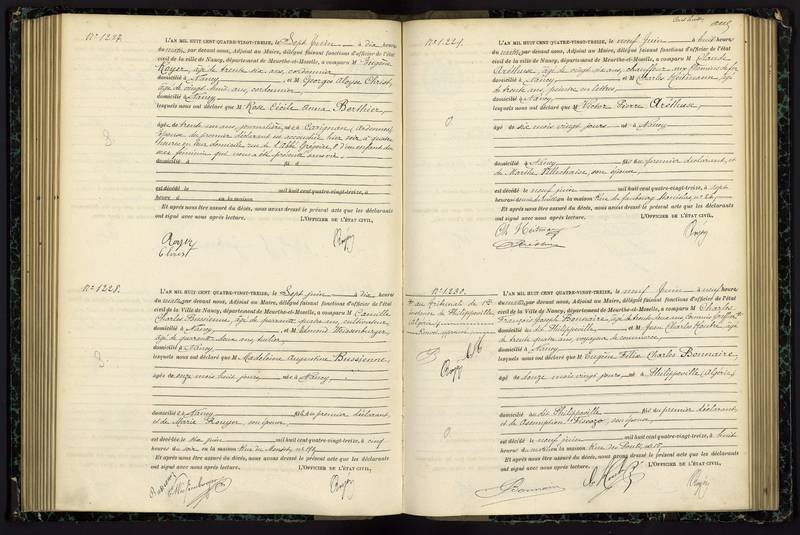 N° 1227.
L'AN MIL HUIT CENT QUATRE-VINGT-TREIZE, le Sept Juin, à dix heures
du matin, par devant nous, Adjoint au Maire, délégué faisant fonctions d'officier de l'état
civil de la ville de Nancy, département de Meurthe-et-Moselle, a comparu M Eugène
Royer, âgé de trente six ans, cordonnier,
domicilié à Nancy, et M Georges Aloyse Christ,
âgé de vingt huit ans, cordonnier,
domicilié à Nancy,
lesquels nous ont déclaré que M Rose Cécile Anna Berthier,
âgée de trente un ans, journalière, née à Carignan (Ardennes)
épouse du premier déclarant est accouchée hier soir à quatre
heures en leur domicile rue de l'Abbé Grégoire, 8 d'un enfant du
sexe féminin qui nous a été présenté sans vie.
domicilié à
est décédé le mil huit cent quatre-vingt-treize, à
heure en la maison
Et après nous être assuré du décès, nous avons dressé le présent acte que les déclarants
ont signé avec nous après lecture. L'OFFICIER DE L'ÉTAT CIVIL,
Royer
Christ
N° 1228.
L'AN MIL HUIT CENT QUATRE-VINGT-TREIZE, le Sept juin, à dix heures
du matin, par devant nous, Adjoint au Maire, délégué faisant fonctions d'officier de l'état
civil de la Ville de Nancy, département de Meurthe-et-Moselle, a comparu M Camille
Charles Bussienne, âgé de quarante quatre ans, cultivateur,
domicilié à Nancy, et M Edmond Weissenburger,
âgé de quarante deux ans, sellier,
domicilié à Nancy,
lesquels nous ont déclaré que M Madeleine Augustine Bussienne,
âgée de onze mois huit jours, née à Nancy,
domiciliée à Nancy, fille du premier déclarant,
et de Marie Rouyer, son épouse,
est décédée le six juin mil huit cent quatre-vingt-treize, à cinq
heures du soir en la maison Rue du
Et après nous être assuré du décès, nous avons dressé le présent acte que les déclarants
ont signé avec nous après lecture. L'OFFICIER DE L'ÉTAT CIVIL,
N° 1229.
L'AN MIL HUIT CENT QUATRE-VINGT-TREIZE, le neuf Juin, à huit heures
du matin, par devant nous, Adjoint au Maire, délégué faisant fonctions d'officier de l'état
civil de la ville de Nancy, département de Meurthe-et-Moselle, a comparu M Claude
Aréthuse, âgé de vingt six ans, chauffeur aux chemins de fer,
domicilié à Nancy, et M Charles Heitmann, âgé
de trente ans, peintre en lettres,
domicilié à Nancy,
lesquels nous ont déclaré que M Victor Pierre Aréthuse,
âgé de six mois vingt jours né à Nancy
domicilié à Nancy, fils du premier déclarant, et
de Marthe Villechaise, son épouse,
est décédé le neuf juin mil huit cent quatre-vingt-treize, à sept
heures du matin en la maison Rue du faubourg
Et après nous être assuré du décès, nous avons dressé le présent acte que les déclarants
ont signé avec nous après lecture. L'OFFICIER DE L'ÉTAT CIVIL,
N° 1230.
au tribunal de 1re
instance de Philippeville
(Algérie)
Renvoi approuvé
L'AN MIL HUIT CENT QUATRE-VINGT-TREIZE, le neuf Juin, à neuf heures
du matin, par devant nous, Adjoint au Maire, délégué faisant fonctions d'officier de l'état
civil de la Ville de Nancy, département de Meurthe-et-Moselle, a comparu M Charles
François Joseph Bonnaire, âgé de trente deux ans, commis greffier
domicilié au dit Philippeville, et M Jean Charles, âgé
de trente quatre ans, voyageur de commerce,
domicilié à Nancy,
lesquels nous ont déclaré que M Eugène Félix Charles Bonnaire,
âgé de douze mois vingt jours, né à Philippeville (Algérie)
domicilié au dit Philippeville, fils du premier déclarant,
et de Assomption, son épouse,
est décédé le neuf juin mil huit cent quatre-vingt-treize, à huit
heures du matin en la maison Rue des Ponts
Et après nous être assuré du décès, nous avons dressé le présent acte que les déclarants
ont signé avec nous après lecture. L'OFFICIER DE L'ÉTAT CIVIL,
Bonnaire